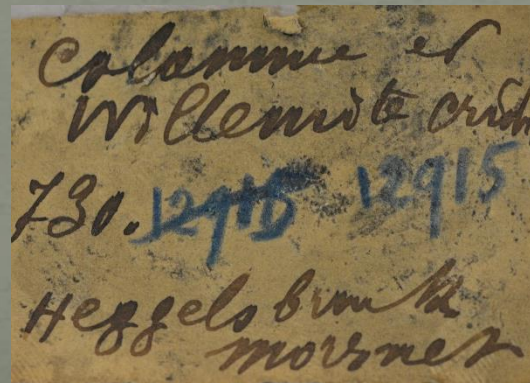 Calamine et
Willemite
730. 12915 12915
Heggelsbruck
moresnet